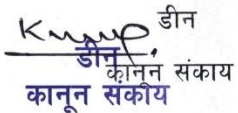 डीन
डीन
कानून संकाय
कानून संकाय